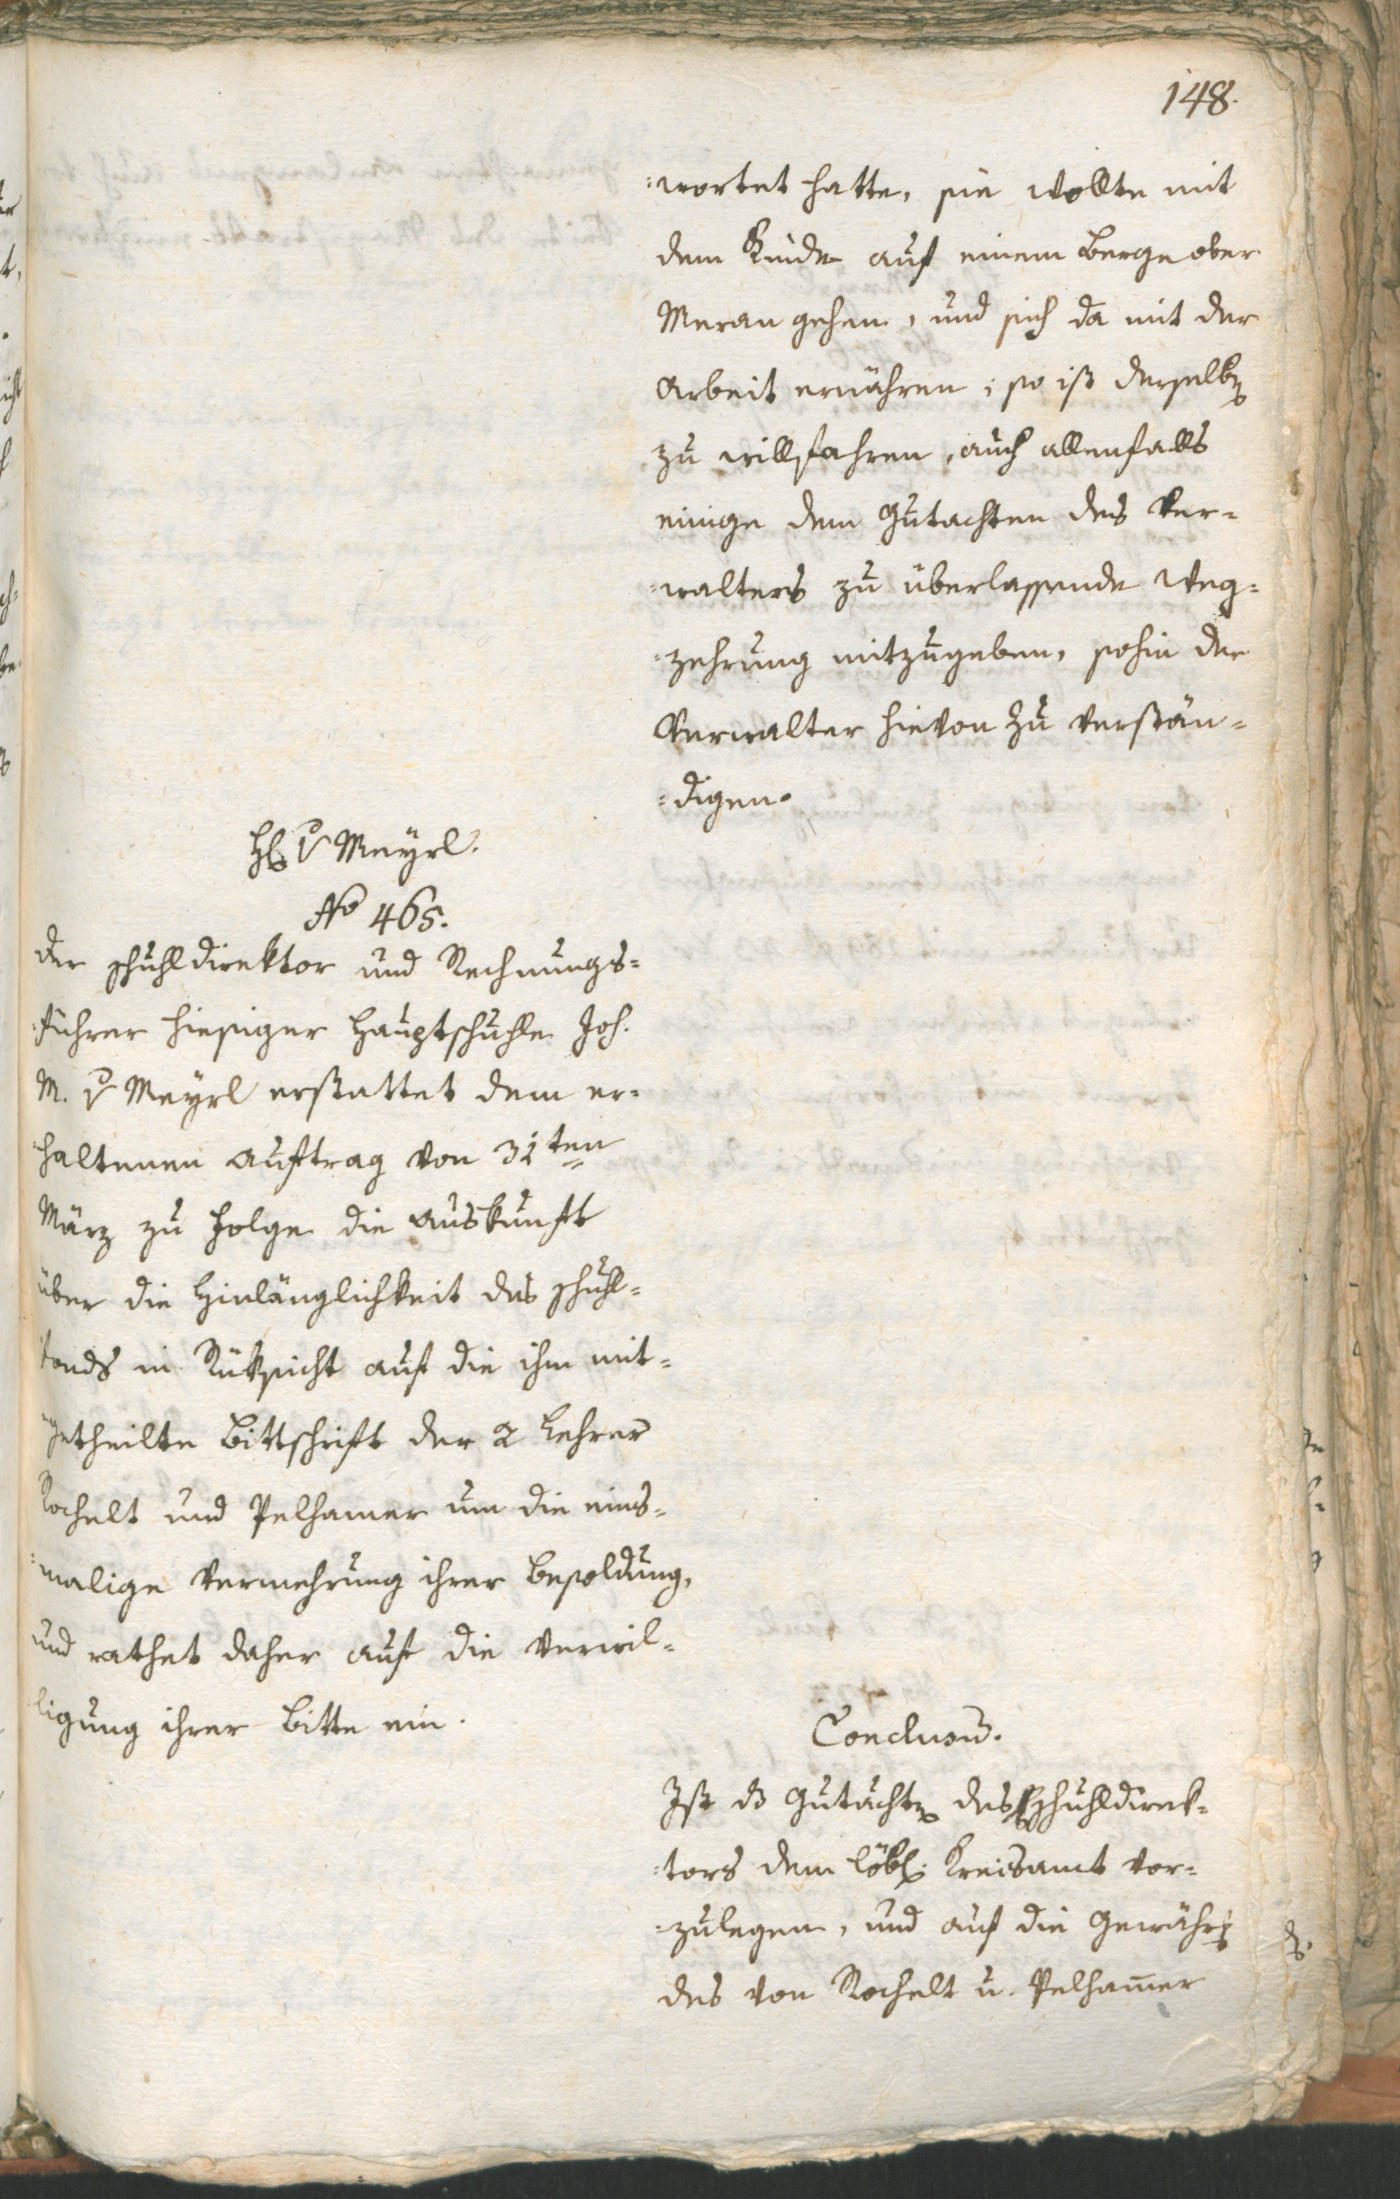 148.
:wortet hatte, sie wollte mit
dem Kinde auf einem Berge ober
Meran gehen, und sich da mit der
Arbeit ernähren; so ist derselb[en]
zu willfahren, auch allenfalls
einige dem Gutachten des Ver=
=walters zu überlassende Weg=
=zehrung mitzugeben, sohin der
Verwalter hievon zu verstän=
=digen.
H. v Meyrl.
No 465.
Der Schuhldirektor und Rechnungs=
führer hiesiger Hauptschuhle Joh.
M. v Meyrl erstattet dem er=
haltenen Auftrag von 31ten
März zu Folge die Auskunft
über die Hinlänglichkeit des Schuhl=
fonds in Rüksicht auf die ihm mit=
=getheilte Bittschrift der 2 Lehrer
Rochelt und Pelhamer um die eins=
=malige Vermehrung ihrer Besoldung,
und rathet daher auf die Verwil=
ligung ihrer Bitte ein.
Conclusũ.
Ist ds Gutacht[en] des Schuhldirek=
=tors dem löbl: Kreisamt vor=
=zulegen, und auf die Gewähr[ung]
des von Rochelt u. Pelham̄er